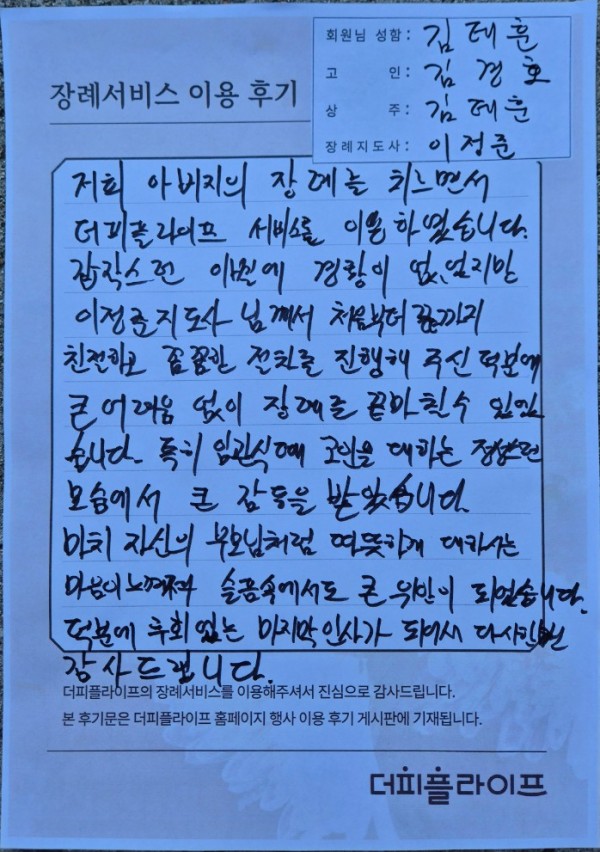 회원님 성함 : 김태훈
고 인 : 김경호
상 주 : 김태훈
장례지도사 : 이정준
장례서비스 이용 후기
저희 아버지의 장례를 치느면서
더피플라이프 서비스를 이용하였습니다.
갑작스런 이별에 경황이 없었지만
이정준지도사 님께서 처음부터 끝까지
친절하고 꼼꼼한 절차를 진행해 주신 덕분에
큰 어려움 없이 장례를 끝마친수 있었
습니다. 특히 입관식때 고인을 대하는 정성스런
모습에서 큰 감동을 받았습니다.
마치 자신의 부모님처럼 따뜻하게 대하시는
마음이 느껴져 슬픔속에서도 큰 위안이 되었습니다.
덕분에 후회없는 마지막 인사가 되어서 다시한번
감사드립니다.
더피플라이프의 장례서비스를 이용해주셔서 진심으로 감사드립니다.
본 후기문은 더피플라이프 홈페이지 행사 이용 후기 게시판에 기재됩니다.
더피플라이프